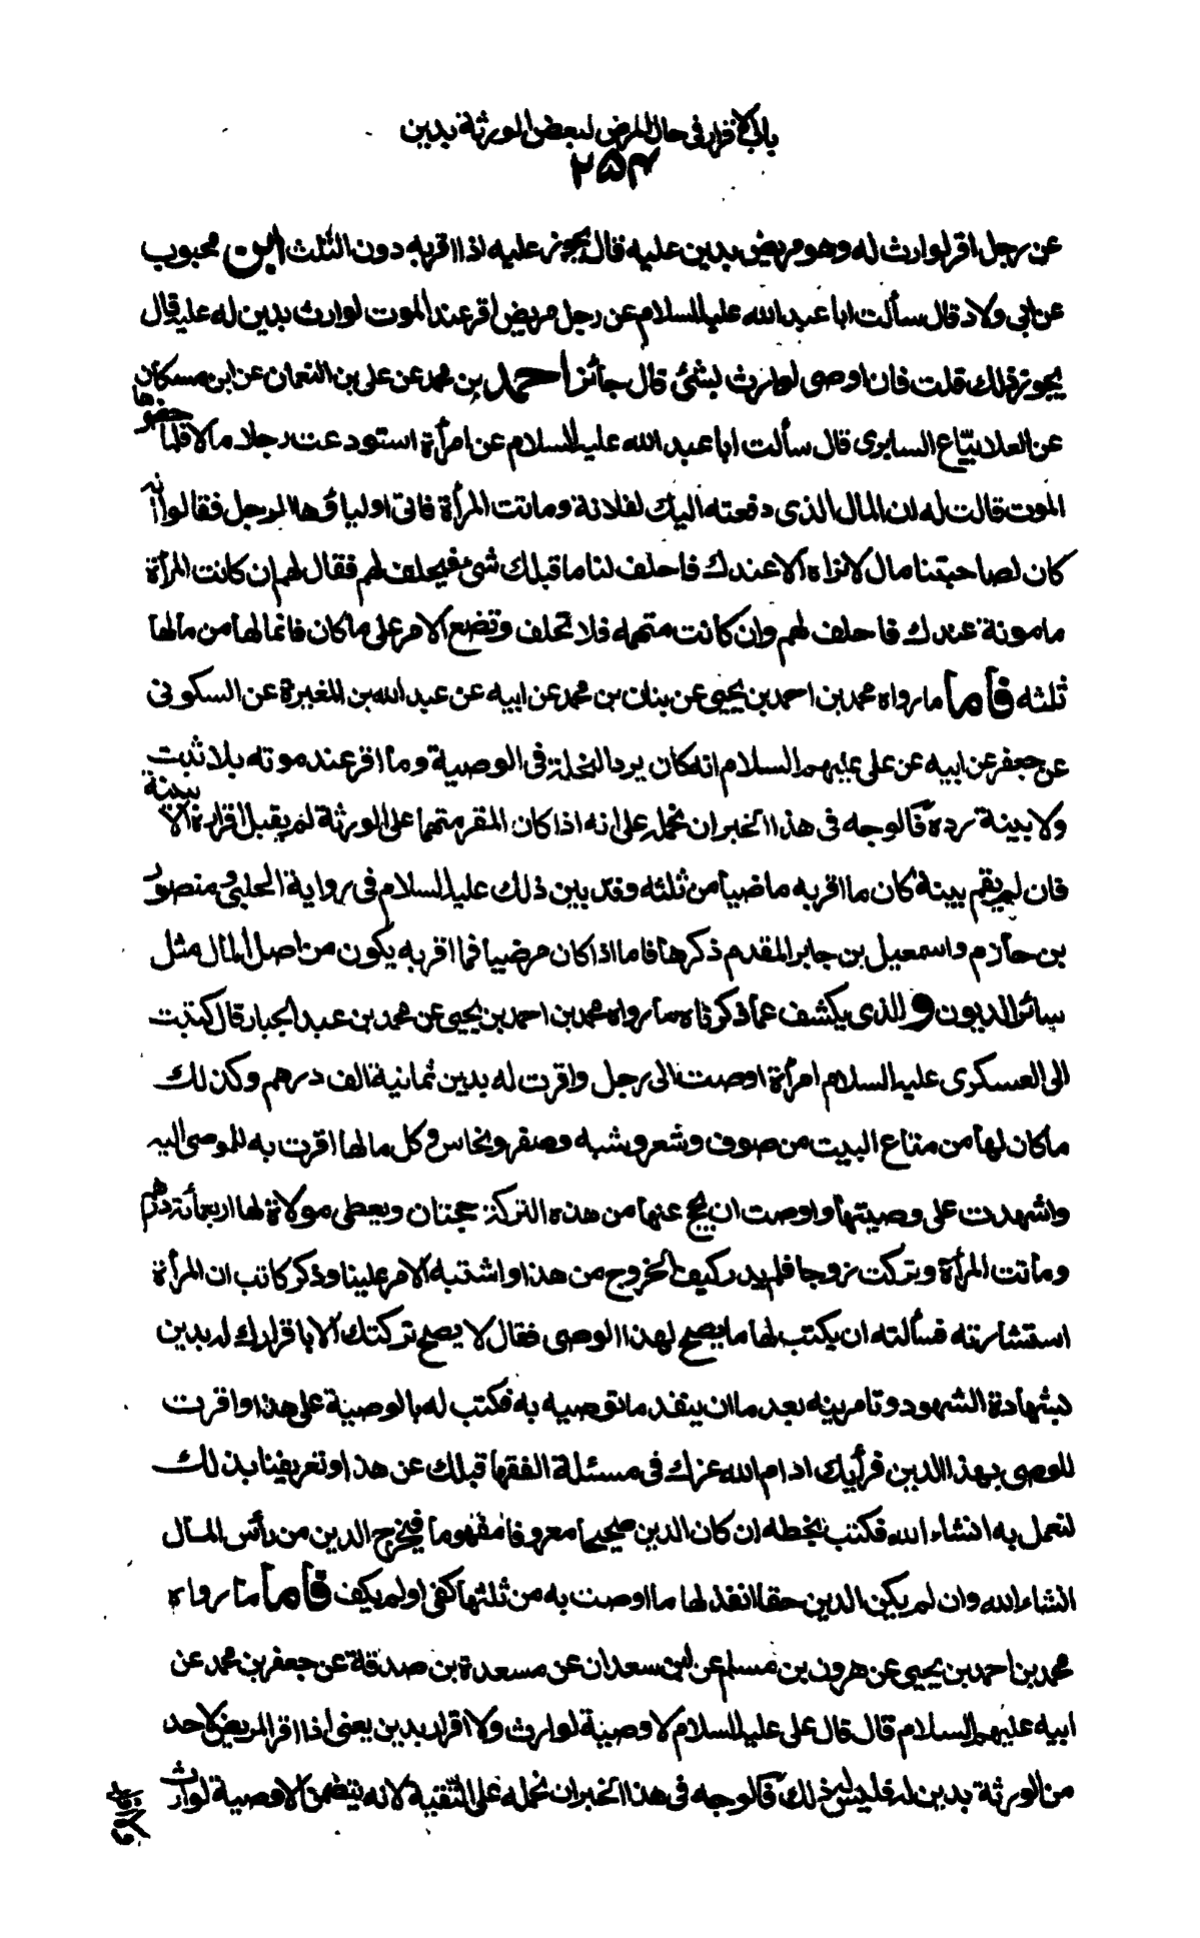 باب الاقرار فى حال المرض لبعض الورثة بدين
۲۵۴
عن رجل اقر لوارث له وهو مريض بدين عليه قال يجوز عليه اذا اقر به دون الثلث ابن محبوب
عن ابى ولاد قال سألت ابا عبد الله عليه السلام عن رجل مريض اقر عند الموت لوارث بدين له عليه قال
يجوز ذلك قلت فان اوصى لوارث بشئ قال جائز احمد بن محمد عن على بن النعمان عن ابن مسكان
عن العلا بيّاع السابرى قال سألت ابا عبد الله عليه السلام عن امرأة استودعت رجلا مالا فلما حضرها
الموت قالت له ان المال الذى دفعته اليك لفلانة وماتت المرأة فاتى اولياؤها الرجل فقالوا انه
كان لصاحبتنا مال لا نراه الا عندك فاحلف لنا ما قبلك شئ فيحلف لهم فقال لهم ان كانت المرأة
مامونة عندك فاحلف لهم وان كانت متهمه فلا تحلف وتضع الامر على ما كان فانما لها من مالها
ثلثه فاما ما رواه محمد بن احمد بن يحيى عن بنان بن محمد عن ابيه عن عبد الله بن المغيرة عن السكونى
عن جعفر عن ابيه عن على عليهم السلام انه كان يرد النحلة فى الوصية وما اقر عند موته بلا ثبت
ولا بينة رده فالوجه فى هذا الخبر ان نحمله على انه اذا كان المقر متهما على الورثة لم يقبل اقراره الا ببينة
فان لم يقم بينة كان ما اقر به ماضيا من ثلثه وقد بين ذلك عليه السلام فى رواية الحلبى ومنصور
بن حازم واسمعيل بن جابر المقدم ذكرها فاما اذا كان مرضيا فما اقر به يكون من اصل المال مثل
سائر الديون والذى يكشف عما ذكرناه ما رواه محمد بن احمد بن يحيى عن محمد بن عبد الجبار قال كتبت
الى العسكرى عليه السلام امرأة اوصت الى رجل واقرت له بدين ثمانية الف درهم وكذلك
ما كان لها من متاع البيت من صوف وشعر وشبه وصفر ونحاس وكل مالها اقرت به للموصى اليه
واشهدت على وصيتها واوصت ان يحج عنها من هذه التركة حجتان ويعطى مولاة لها اربعمائة درهم
وماتت المرأة وتركت زوجا فلم يدر كيف الخروج من هذا واشتبه الامر علينا وذكر كاتب ان المرأة
استشارته فسألته ان يكتب لها ما يصح لهذا الوصى فقال لا يصح تركتك الا باقرارك له بدين
بشهادة الشهود وتامرينه بعد ما ان ينفذ ما توصيه به فكتب له بالوصية على هذا واقرت
للوصى بهذا الدين فرأيك ادام الله عزك فى مسئلة الفقها قبلك عن هذا وتعريفنا بذلك
لنعمل به انشاء الله فكتب بخطه ان كان الدين صحيحا معروفا مفهوما فيخرج الدين من رأس المال
انشاء الله وان لم يكن الدين حقا انفذ لها ما اوصت به من ثلثها كفى او لم يكف فاما ما رواه
محمد بن احمد بن يحيى عن هرون بن مسلم عن ابن سعدان عن مسعدة بن صدقة عن جعفر بن محمد عن
ابيه عليهم السلام قال قال على عليه السلام لا وصية لوارث ولا اقرار بدين يعنى اذا اقر المريض لاحد
من الورثة بدين له فليس له ذلك فالوجه فى هذا الخبر ان نحمله على التقية لانه يتضمن لا وصية لوارث